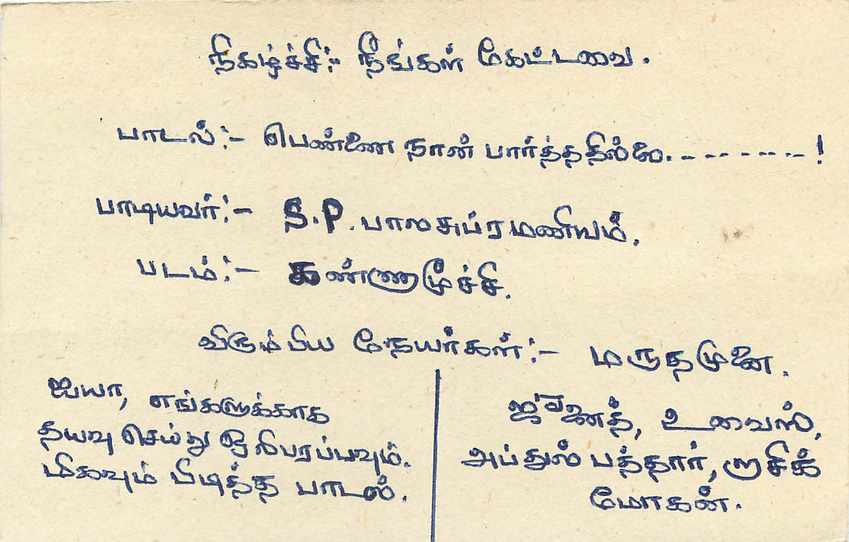 நிகழ்ச்சி:- நீங்கள் கேட்டவை.
பாடல்:- பெண்ணை நான் பார்த்ததில்லை.----------!
பாடியவர்:- S.P.பாலசுப்ரமணியம்.
படம்:- கண்ணாமூச்சி.
விரும்பிய நேயர்கள்:- மருதமுனை.
ஐயா, எங்களுக்காக
தயவு செய்து ஒலிபரப்பவும்.
மிகவும் பிடித்த பாடல்.
உவைஸ்,
அப்துல் பத்தார், றசிக்
மோகன்.